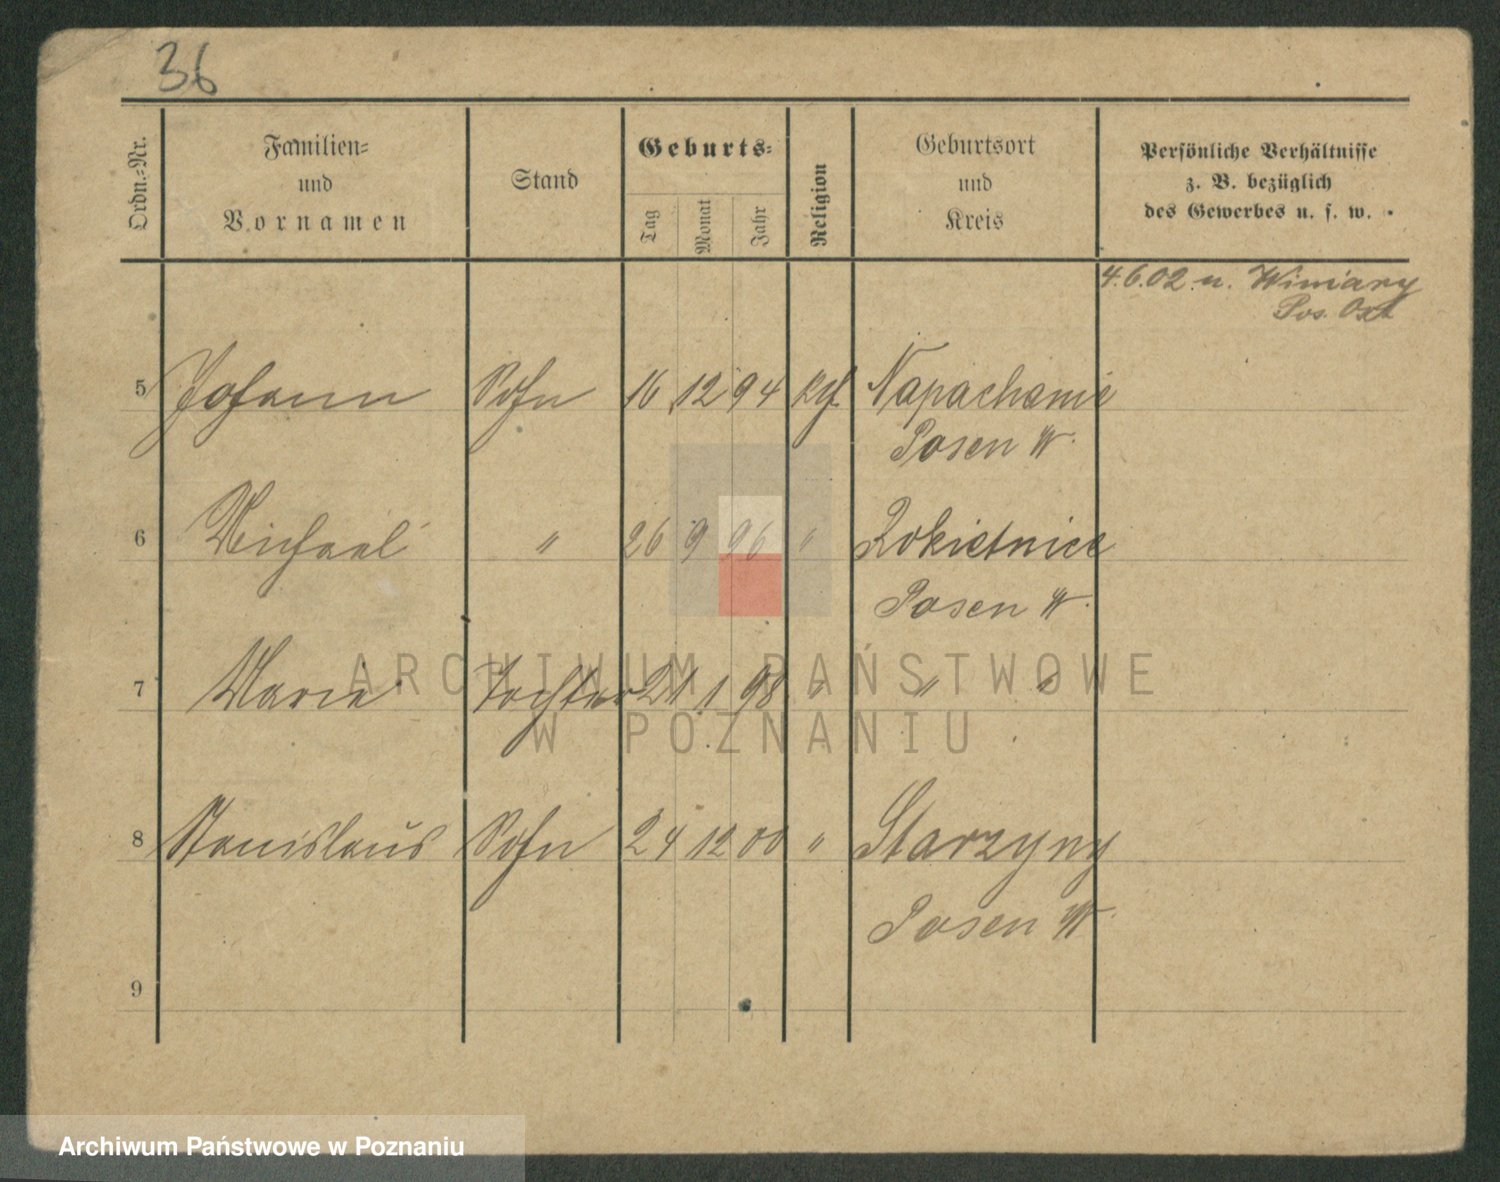 36
Ordn.-Nr.
Familien-
und
Vornamen
Stand
Geburts-
Tag
Monat
Jahr
Religion
Geburtsort
und
Kreis
Persönliche Verhältnisse
z. B. bezüglich
des Gewerbes u. s. w.
4.6.02 n. Winiary
Pos. Ost
5 Johann Sohn 16 12 94 kth. Napachanie
Posen W.
6 Michael " 26 9 96 " Rokietnice
Posen W.
7 Marie Tochter 21 1 98 " " "
8 Stanislaus Sohn 24 12 00 " Starzyny
Posen W.
9
ARCHIWUM PAŃSTWOWE
W POZNANIU
Archiwum Państwowe w Poznaniu